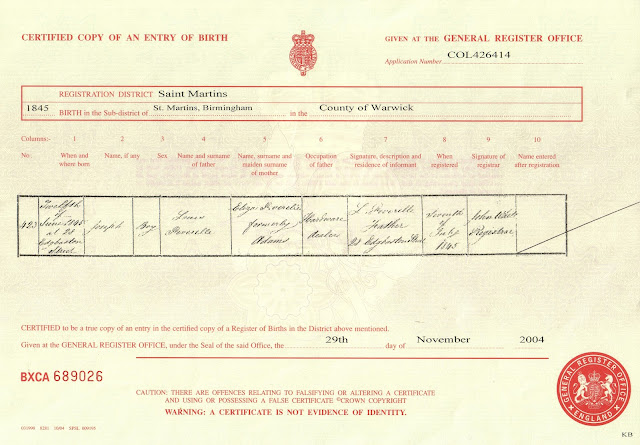 CERTIFIED COPY OF AN ENTRY OF BIRTH
GIVEN AT THE GENERAL REGISTER OFFICE
Application Number COL426414
REGISTRATION DISTRICT Saint Martins
1845 BIRTH in the Sub-district of St. Martins, Birmingham in the County of Warwick
Columns:- 1 2 3 4 5 6 7 8 9 10
No. When and where born Name, if any Sex Name and surname of father Name, surname and maiden surname of mother Occupation of father Signature, description and residence of informant When registered Signature of registrar Name entered after registration
423
Twelfth
of
June 1845
at 28
Edgbaston
Street
Joseph
Boy
Lewis
Eliza
formerly
Adams
Hardware
dealer
L
Father
28 Edgbaston Street
Seventh
of
July
1845
John
Registrar
CERTIFIED to be a true copy of an entry in the certified copy of a Register of Births in the District above mentioned.
Given at the GENERAL REGISTER OFFICE, under the Seal of the said Office, the 29th day of November 2004
BXCA 689026
CAUTION: THERE ARE OFFENCES RELATING TO FALSIFYING OR ALTERING A CERTIFICATE
AND USING OR POSSESSING A FALSE CERTIFICATE ©CROWN COPYRIGHT
WARNING: A CERTIFICATE IS NOT EVIDENCE OF IDENTITY.
GENERAL REGISTER OFFICE
ENGLAND
KB